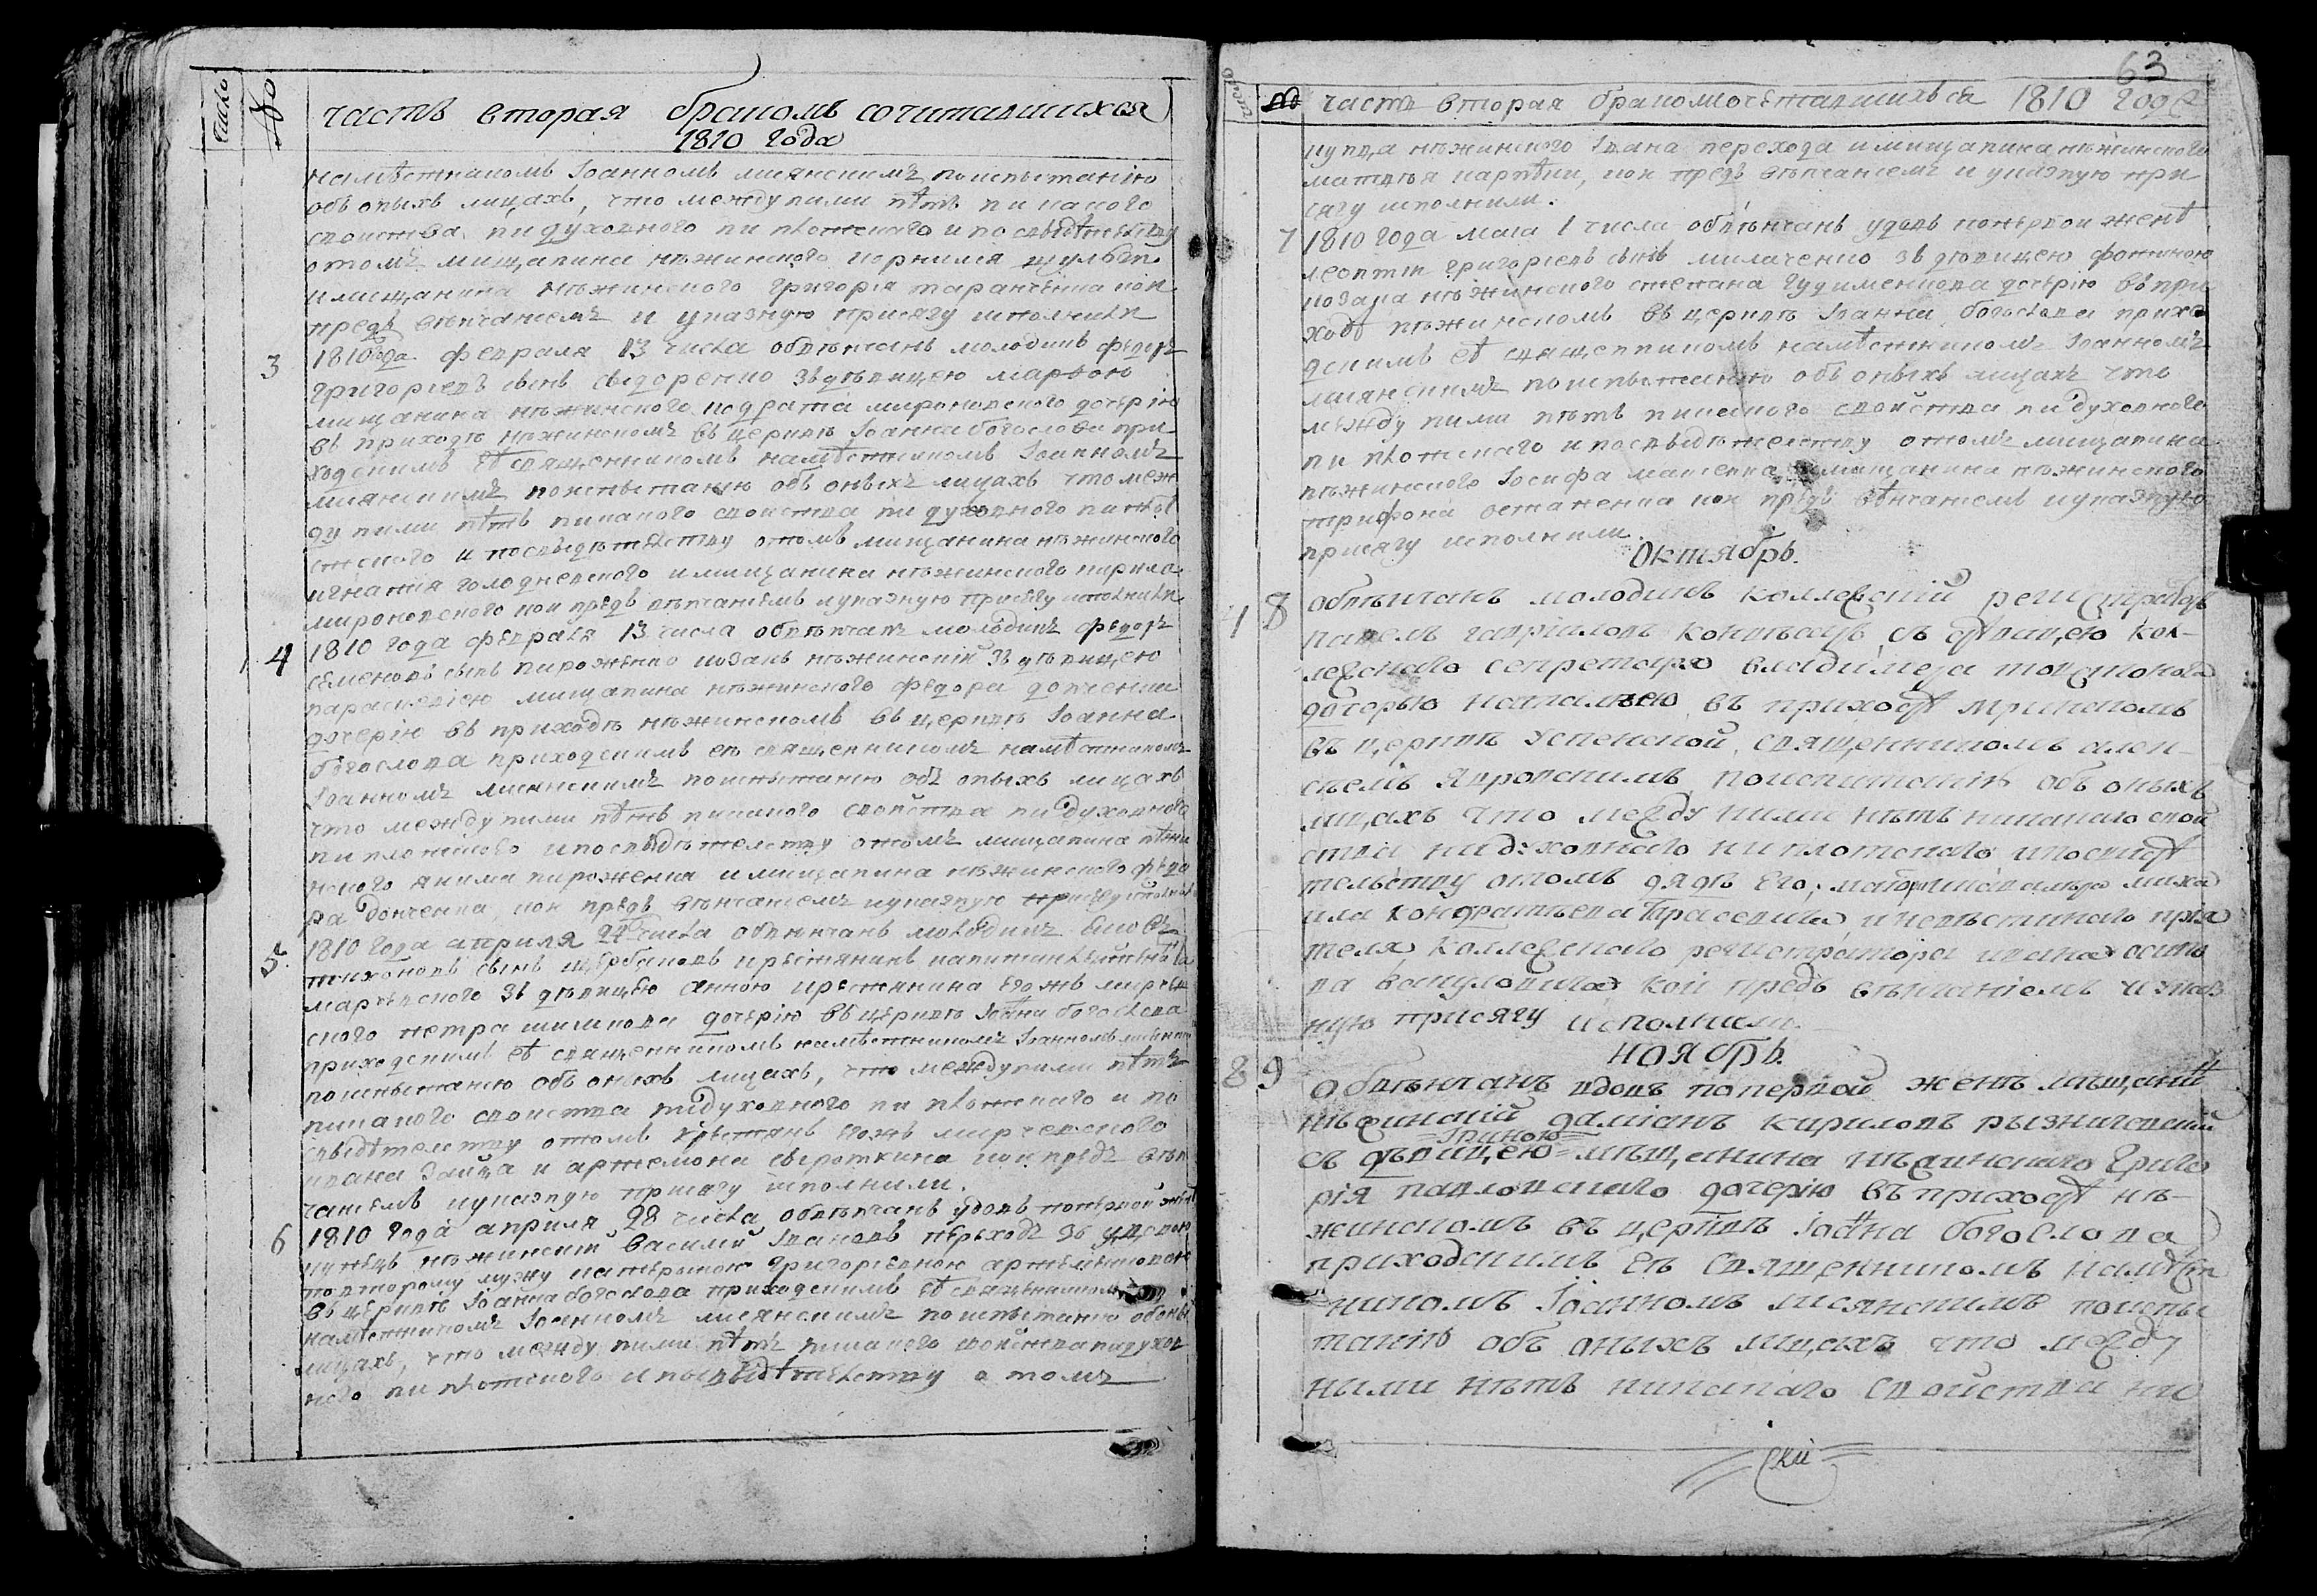 число
№
часть вторая бракомъ сочитавшихся
1810 года
намѣстникомъ Іоанномъ лисянскимъ поиспытанію
объ оныхъ лицахъ, что между ними нѣтъ ни какого
своиства ни духовного ни плотского и по свыдѣтелству
отомъ мищанина нѣжинского корнилія шулги
имищанина нѣжинского григорія таранченка кои
предъ вѣнчаніемъ и указную присягу исполнили
3 1810 года февраля 13 числа обвѣнчанъ молодикъ федоръ
григоріевъ сынъ сыдоренко зъ дѣвицею марθою
мищанина нѣжинского кодрата мироновского дочерію
въ приходѣ нѣжинскомъ въ церкви Іоанна богослова при
ходскимъ еѣ священникомъ намѣстникомъ Іоанномъ
лисянскимъ поиспытанію объ оныхъ лицахъ что меж
ду ними нѣтъ никакого своиства ни духовного ни пло
тского и посвыдѣтелству отомъ мищанина нѣжинского
игнатія голодневского имищанина нѣжинского кирила
мироновского кои предъ вѣнчаніемъ иуказную присягу исполнили
4 1810 года февраля 13 числа обвѣнчанъ молодикъ федоръ
семеновъ сынъ пироженко козакъ нѣжинскій зъ дѣвицею
параскевіею мищанина нѣжинского федора донченка
дочерію въ приходѣ нѣжинскомъ въ церквѣ Іоанна
богослова приходскимъ еѣ священникомъ намѣстникомъ
Іоанномъ лисянскимъ поиспытанію объ оныхъ лицахъ
что между ними нѣтъ никакого свойства ни духовного
ни плотского ипосвыдѣтелству отомъ мищанина нѣжи
нского якима пироженка имищанина нѣжинского федо
ра донченка кои предъ вѣнчаніемъ иуказную присягу исполнили
5 1810 года апрыля 24 числа обвѣнчанъ молодикъ
тихоновъ сынъ щербаковъ крестянинъ капитанлейтенанта
марчевского зъ дѣвицею анною крестянина егожъ марчев
ского петра шишкова дочерію въ церквѣ Іоанна богослова
приходскимъ еѣ священникомъ намѣстникомъ Іоанномъ лисянским
поиспытанію объ оныхъ лицахъ, что между ними нѣтъ
никакого своиства нидуховного ни плотского и по
свыдѣтелству отомъ крестянъ егожъ марчевского
ивана зайца и артемона сыроткина кои предъ вѣн
чаніемъ иуказную присягу исполнили.
6 1810 года апрыля 28 числа обвѣнчанъ удовъ попервой женѣ
купецъ нѣжинскій василій Івановъ переходъ зъ удовою
повторому мужу катериною григоріевною артеменковою
въ церквѣ Іоанна богослова приходскимъ еѣ священникомъ
намѣстникомъ Іоанномъ лисянскимъ поиспытанію обоны
лицахъ, что между ними нѣтъ никакого свойства нидухов
ного ни плотского ипосвыдѣтелству о томъ
63
число
№
часть вторая бракомъсочетавшихься 1810 года
купца нѣжинского Івана перехода имищанина нѣжинского
матвѣя карпѣки, кои предъ вѣнчаніемъ и указную при
сягу исполнили.
7 1810 года маіа 1 числа обвѣнчанъ удовъ попервои женѣ
леонтій григоріевъ сынъ милаченко зъ дѣвицею фотиною
козака нѣжинского степана гудименкова дочерію въ при
ходѣ нѣжинскомъ въ церквѣ Іоанна богослова прихо
дскимъ еѣ священникомъ намѣстникомъ Іоанномъ
лисянскимъ поиспытанію объ оныхъ лицахъ что
между ними нѣтъ никакого свойства ни духовного
ни плотскаго и посвыдѣтелству отомъ мищанина
нѣжинского Іосифа имищанина нѣжинского
трифона остапенка кои предъ вѣнчаніемъ иуказную
присягу исполнили.
Октябрь.
1 8 Обвѣнчанъ молодикъ коллежскій регистраторъ
павелъ гавріиловъ съ дѣвицею кол-
лежскаго секретара владимера товстоногa
дочерью наталѣею въ приходѣ мринскомъ
въ церквѣ успенской, священникомъ алек-
сѣемъ поиспитанію объ оныхъ
лицахъ что между ними нѣтъ никакаго свой
ства нидуховнаго ни плотскаго ипосвидѣ
тельству отомъ дядѣ его, миха
ила кондратьева тарасевича, иневѣстинаго прія
теля коллежскаго регистратора ивана осипо
ва кои предъ вѣнчаніемъ иуказ
ную присягу исполнили.
Ноябрь.
8 9 Обвѣнчанъ вдовъ поперпой женѣ мѣщанинъ
нѣжинскій даміанъ кириловъ рызничевскій
=Іриною=
съ дѣвицею мѣщанина нѣжинскаго григо
рія павловскаго дочерію въ приходѣ нѣ-
жинскомъ въ церквѣ Іоанна богослова
приходскимъ еѣ священникомъ намѣст
никомъ Іоанномъ лисянскимъ поиспы
танію объ оныхъ лицахъ что между
ными нѣтъ никакаго свойства ни